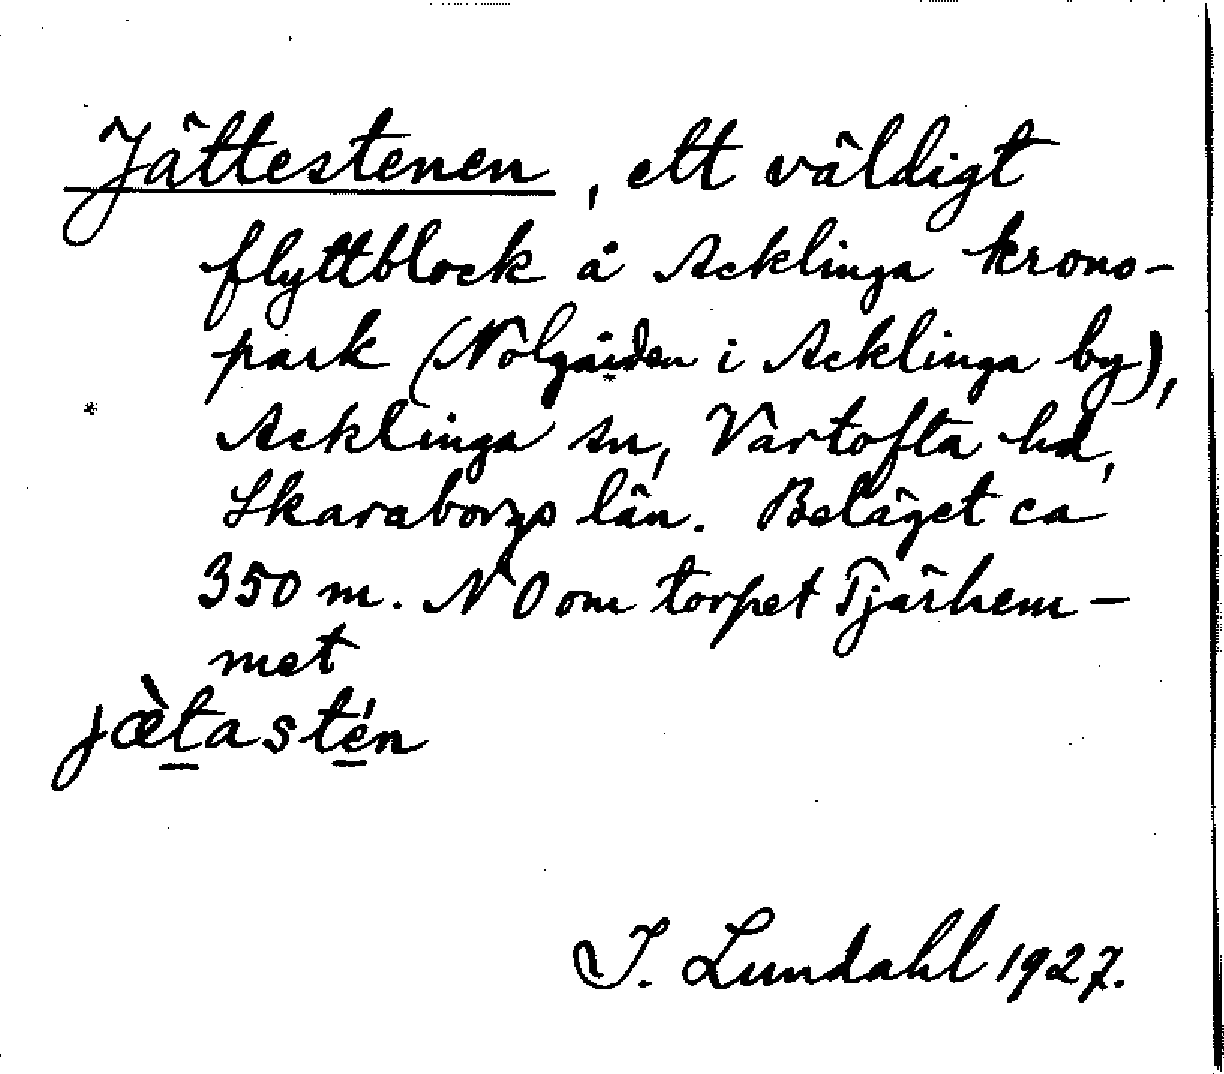 Jättestenen, ett väldigt
flyttblock å Acklinga krono-
park (Nolgården i Acklinga by),
Acklinga sn, Vartofta hd,
Skaraborgs län. Beläget ca
350 m. NO om torpet Tjärhem-
met
jæ̀tastén
I. Lundahl 1927.